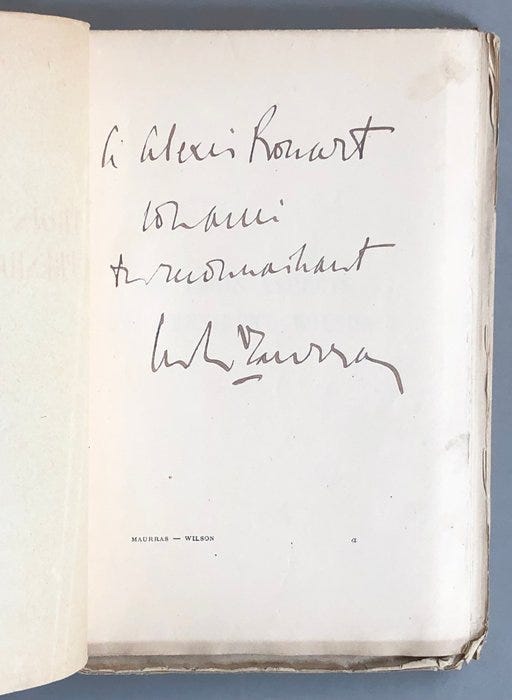 à Alexis Rouart
son ami
très reconnaissant
Ch Maurras
MAURRAS — WILSON a